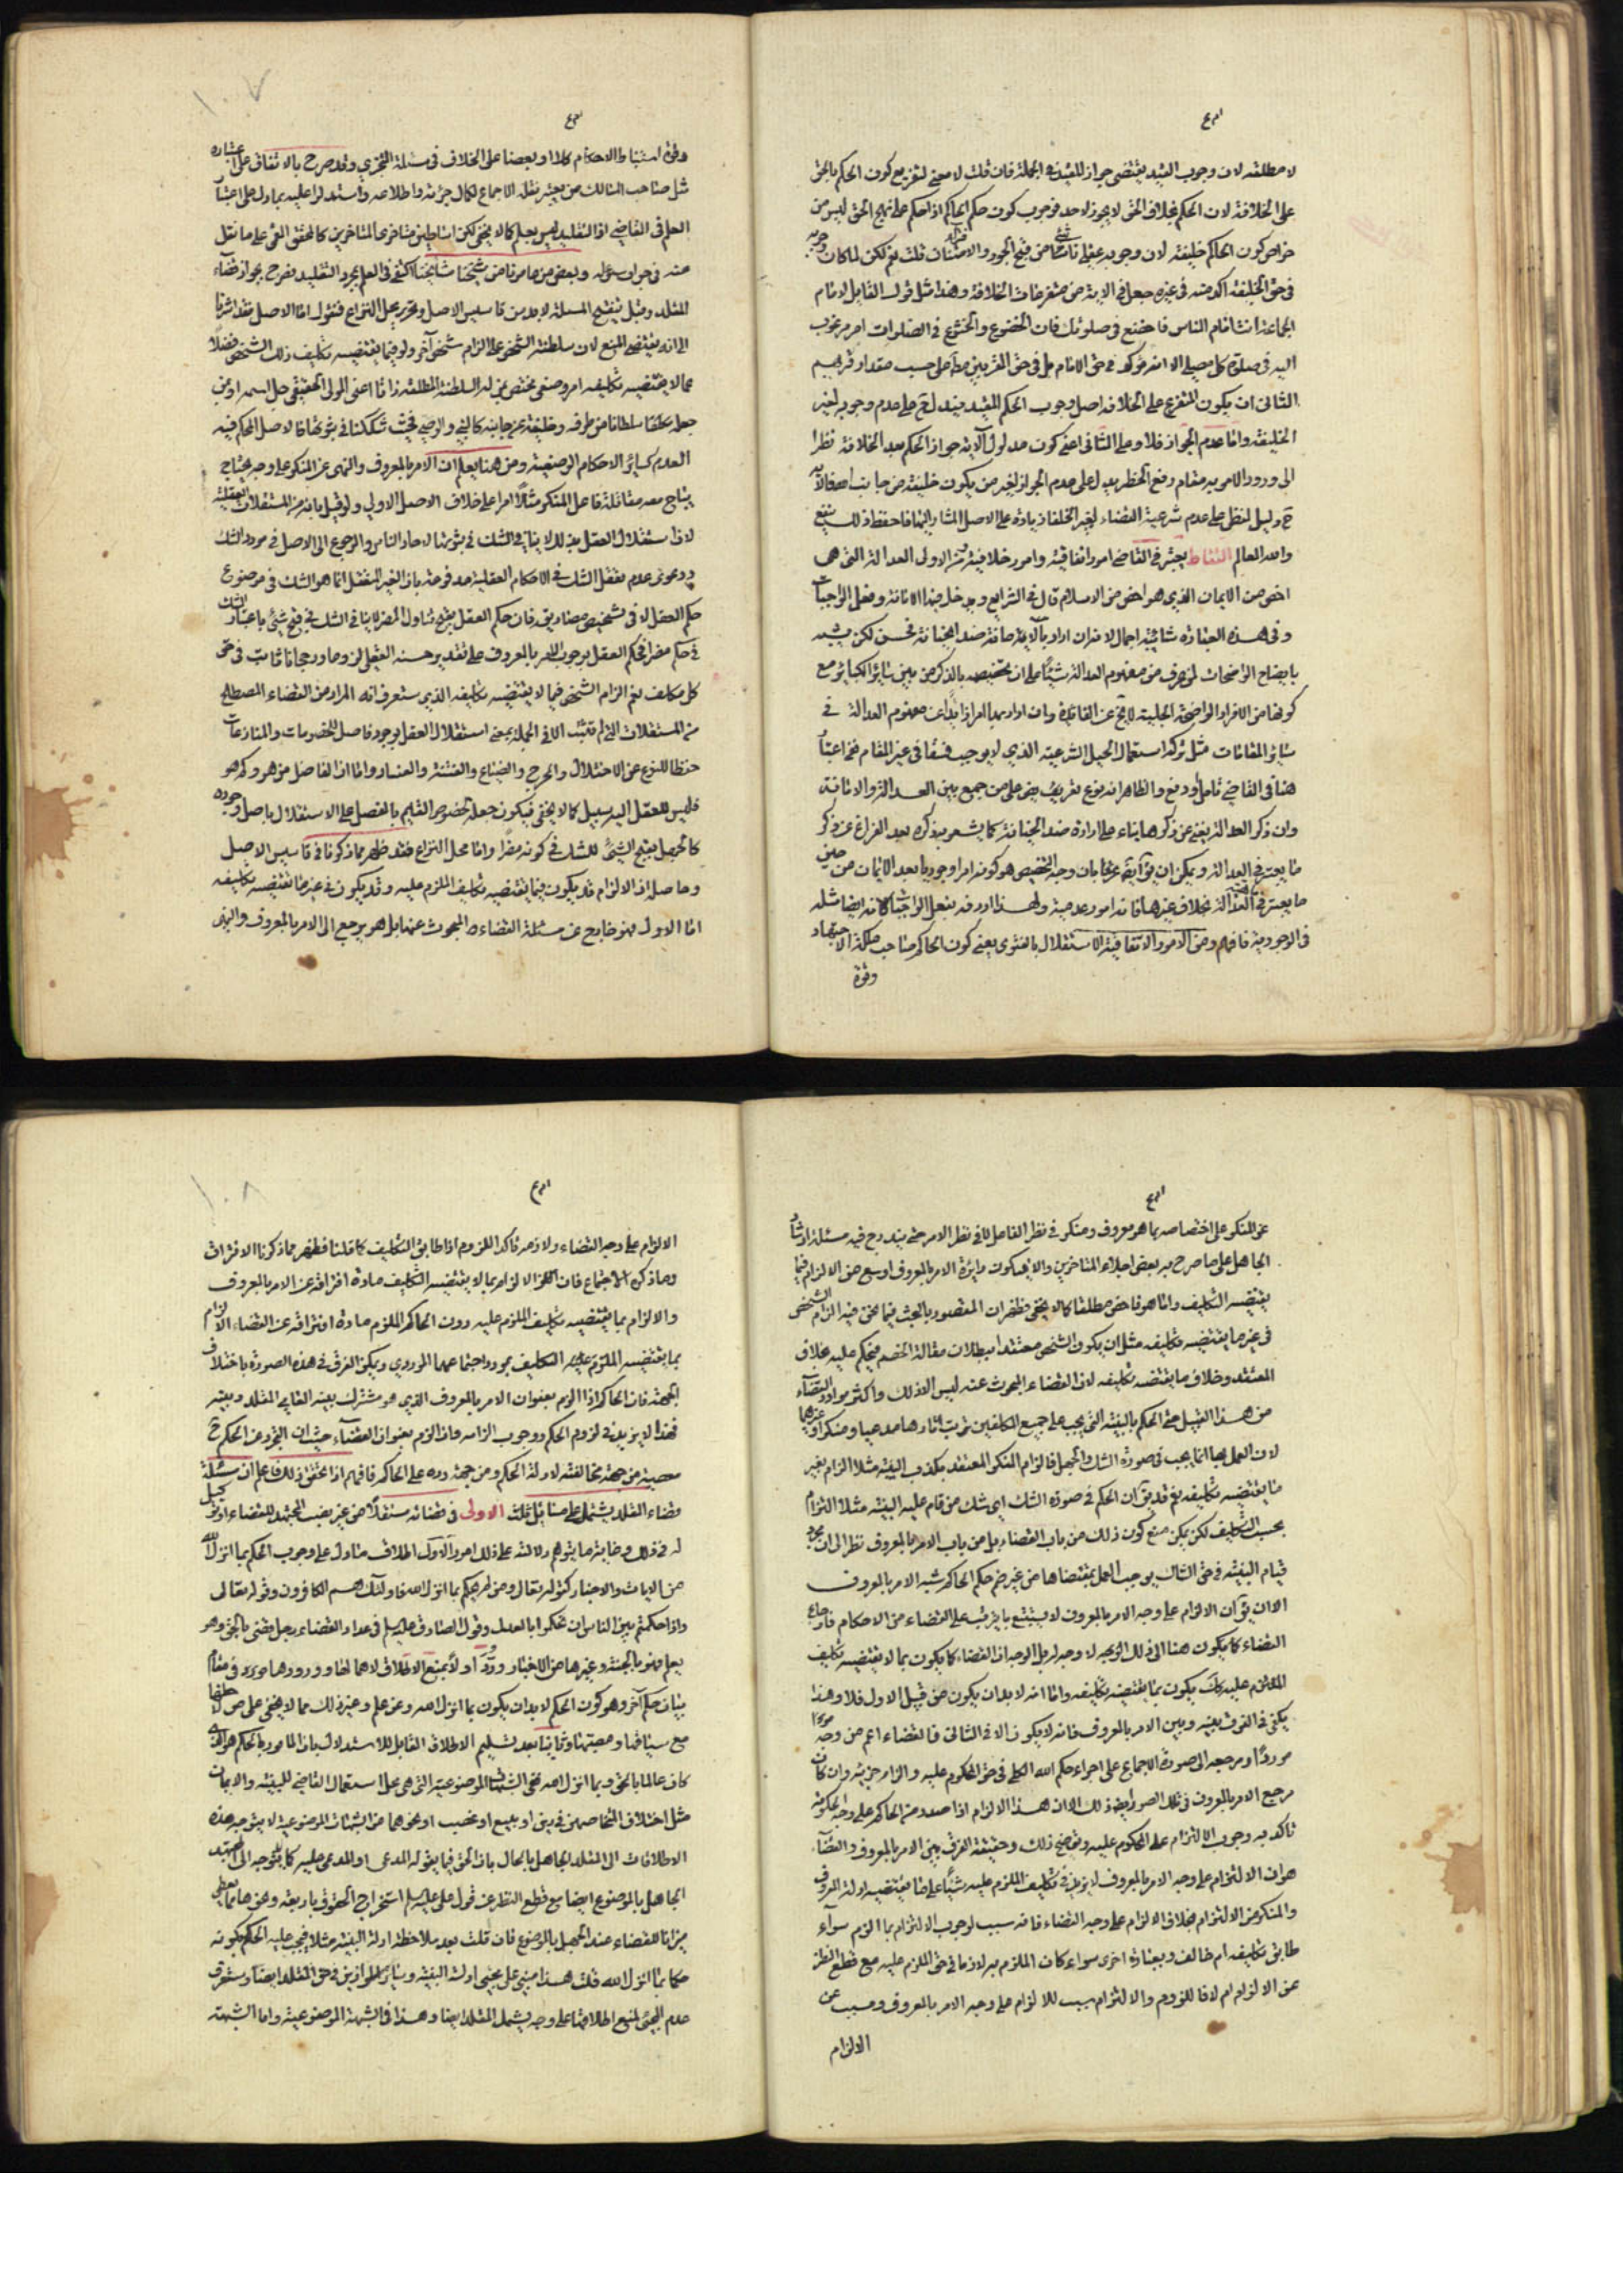 لا مطلقه لان وجوب المقيد يقتضى جواز المقيد فى الجملة فان قلت لا معنى لتفريع كون الحكم بالحق
على الخلافة لان الحكم بخلاف الحق لا يجوز لاحد فوجوب كون حكم الحاكم اذا حكم على نهج الحق ليس من
خواص كون الحاكم خليفة لان وجوبه عقلى من قبح الجور والامتنان قلت نعم لكن لما كان وجوبه
فى حق الخليفة اكد منه فى غيره جعل فى الاية من متفرعات الخلافة وهذا مثل قولك القائل لامام
الجماعة انت امام الناس فاخضع فى صلوتك فان الخضوع والخشوع فى الصلوات امر مرغوب
اليه فى صلوة كل مصلى الا انه مؤكد فى حق الامام بل فى حق المقربين على حسب مقدار قربهم
الثانى ان يكون المتفرع على الخلافة اصل وجوب الحكم المقيد فيدل ح على عدم وجوبه لغير
الخليفة واما عدم الجواز فلا وعلى الثانى اعنى كون مدلول الآية جواز الحكم بعد الخلافة نظرا
الى ورود الامر به مقام رفع الحظر يدل على عدم الجواز لغير من يكون خليفة من جانب الله فالاية
ح دليل لفظى على عدم شرعية القضاء لغير الخلفا زيادة على الاصل المشار اليها فاحفظ ذلك ينفع
والله العالم التقاط يعتبر فى القاضى امور اتفاقية وامور خلافية فمن الاول العدالة التى هى
اخص من الايمان الذى هو اخص من الاسلام قال فى الشرايع ويدخل فيها الامانة وفعل الواجبات
وفى هذه العبارة شائبة اجمال لانه ان اراد بالامانة ضد الخيانة فحسن لكن
بايضاح الواضحات لم يعرف من مفهوم العدالة شيئا على ان تخصيصه بالذكر من بين سائر الكبائر مع
كونها من الافراد الواضحة الجلية لا يخ عن الفائدة وان اراد بها امرا زائدا عن مفهوم العدالة فى
سائر المقامات مثل ترك استعمال الحيل الشرعية الذى لا يوجب فسقا فى غير المقام ففى اعتباره
هنا فى القاضى تأمل ودفع والظاهر انه نوع تعريف على من جمع بين العدالة والامانة
وان ذكر العدالة يغنى عن ذكرها بناء على ارادة ضد الخيانة كما يشعر به ذكره بعد الفراغ عن ذكر
ما يعتبر فى العدالة ويمكن ان يق بان وجه التخصيص هو كونه امرا وجوديا بعد الايمان من حين
ما يعتبر فى العدالة بخلاف غيرها فانه امور عدمية ولهذا اردفه بفعل الواجبات كانه ايضا مثله
فى الوجودية فافهم ومن الامور الاتفاقية الاستقلال بالفتوى يعنى كون الحاكم صاحب ملكة الاجتهاد
وقوة
وقوة استنباط الاحكام كلا او بعضا على الخلاف فى مسئلة التجزى وقد صرح بالاتفاق على اعتباره
مثل صاحب المسالك من يعتبر نقله الاجماع لكمال خبرته واطلاعه واستدلوا عليه بما دل على اعتبار
العلم فى القاضى اذ التقليد ليس بعلم كما لا يخفى لكن اساطين متاخرى المتاخرين كالمحقق القمى على ما نقل
عنه فى جواب سؤاله وبعض من عاصرناه من مشايخنا اكتفى فى العلم بمجرد التقليد فصرح بجواز قضاء
المقلد وقبل تنقيح المسئلة لا بد من تاسيس الاصل وتحرير محل النزاع فنقول اما الاصل فقد اشرنا
الى انه يقتضى المنع لان سلطنة الشخص على الزام شخص آخر ولو فيما يقتضيه تكليف ذلك الشخص فضلا
عما لا يقتضيه تكليفه امر وضعى مختص بمن له السلطنة المطلقة ذاتا اعنى المولى الحقيقى جل اسمه او من
جعله سلطانا من طرفه وخليفة عن جانبه كالنبى والوصى فحيث شككنا فى ثبوتها فالاصل المحكم فيه
العدم كسائر الاحكام الوضعية ومن هنا يعلم ان الامر بالمعروف والنهى عن المنكر على وجه يحتاج
يباح معه مقاتلة فاعل المنكر مثلا امر على خلاف الاصل الاولى ولو قيل بانه من المستقلات العقلية
لان استقلال العقل به لا ينافى الشك فى ثبوتها لاحاد الناس والرجوع الى الاصل فى مورد الشك
ودعوى عدم تعقل الشك فى الاحكام العقلية مدفوعة بان الغير المتعقل انما هو الشك فى موضوع
حكم العقل لا فى تشخيص مصاديقه فان حكم العقل بقبح تناول المضر لا ينافى الشك فى قبح شئ باعتبار الشك
فى كونه مضرا فحكم العقل بوجوب الامر بالمعروف على تقدير حسنه العقلى لزوما ورجحانا ثابت فى حق
كل مكلف نعم الزام الشخص فيما لا يقتضيه تكليفه الذى ستعرف انه المراد من القضاء المصطلح
من المستقلات التى لم تثبت الا فى الجملة بمعنى استقلال العقل بوجود فاصل للخصومات والمنازعات
حفظا للنوع عن الاختلال والهرج والضياع والفتنة والفساد واما ان الفاصل من هو وكم هو
فليس للعقل اليه سبيل كما لا يخفى فيكون جعله بالفصل على الاستقلال باصل وجوده
كالجهل بقبح الشئ للشك فى كونه مضرا واما محل النزاع فقد ظهر مما ذكرنا فى تاسيس الاصل
وحاصله ان الالزام قد يكون فيما يقتضيه تكليف الملزم عليه وقد يكون فى غير ما يقتضيه تكليفه
اما الاول فهو خارج عن مسئلة القضاء المبحوث عنها بل هو يرجع الى الامر بالمعروف والنهى
عن المنكر على اختصاصه بما هو معروف ومنكر فى نظر الفاعل لا فى نظر الامر حتى يندرج فيه مسئلة ارشاد
الجاهل على ما صرح به بعض اجلاء المتاخرين والا فيكون دائرة الامر بالمعروف اوسع من الالزام فيما
يقتضيه التكليف واما هو فاخص مطلقا كما لا يخفى فظهر ان المقصود بالبحث فيما نحن فيه الزام الشخص
فى غير ما يقتضيه تكليفه مثل ان يكون الشخص معتقدا ببطلان مقالة الخصم فيحكم عليه بخلاف
المعتقد وخلاف ما يقتضيه تكليفه لان القضاء المبحوث عنه ليس الا ذلك واكثر موارد القضاء
من هذا القبيل حتى الحكم بالبينة التى يجب على جميع المكلفين ترتيب اثارها مدعيا ومنكرا وغيرهما
لان العمل بها انما يجب فى صورة الشك والجهل فالزام المنكر المعتقد بكذب البينة مثلا الزام بغير
ما يقتضيه تكليفه نعم قد يق ان الحكم فى صورة الشك اى شك من قام عليه البينة مثلا التزام
بحسب التكليف لكن يمكن منع كون ذلك من باب القضاء بل من باب الامر بالمعروف نظرا الى ان مجرد
قيام البينة فى حق الشاك يوجب العمل بمقتضاها من غير ضم حكم الحاكم شبه الامر بالمعروف
الا ان يق ان الالزام على وجه الامر بالمعروف لا يستتبع ما يترتب على القضاء من الاحكام فارجاع
القضاء كما يكون هنا الى ذلك لا وجه له بل الوجه ان القضاء كما يكون بما لا يقتضيه تكليف
الملزم عليه كك يكون بما يقتضيه تكليفه واما انه لا بد ان يكون من قبيل الاول فلا وهذا
يكفى فى الفرق بينه وبين الامر بالمعروف فانه لا يكون الا فى الثانى فالقضاء اعم من وجه
موردا ومرجعه الى صورة الاجماع على اجراء حكم الله الكلى فى حق المحكوم عليه والزام جزئيه وان كان
مرجع الامر بالمعروف فى تلك الصور ايضا ذلك الا ان هذا الالزام اذا صدر من الحاكم على وجه الحكومة
تاكد به وجوب الالتزام على المحكوم عليه وتوضيح ذلك وحقيقة الفرق بين الامر بالمعروف والقضاء
هو ان الالتزام على وجه الامر بالمعروف لا يزيد فى تكليف الملزم عليه شيئا على ما يقتضيه ادلة المعروف
والمنكر من الالتزام بخلاف الالزام على وجه القضاء فانه سبب لوجوب الالتزام بما الزم سواء
طابق تكليفه ام خالف وبعبارة اخرى سواء كان الملزم به لازما فى حق الملزم عليه مع قطع النظر
عن الالزام ام لا فاللزوم والالتزام سبب للالزام على وجه الامر بالمعروف ومسبب عن
الالزام
الالزام على وجه القضاء ولازمه تاكد اللزوم اذا طابق التكليف كما قلنا فظهر مما ذكرنا الافتراق
وماذكره الاجتماع فان الالزام بما لا يقتضيه التكليف مادة افتراقه عن الامر بالمعروف
والالزام بما يقتضيه تكليف الملزم عليه دون الحاكم الملزم مادة افتراقه عن القضاء الالزام
بما يقتضيه الملزم عليه التكليف مورد اجتماعهما الموردى ويمكن الفرق فى هذه الصورة باختلاف
الجهة فان الحاكم اذا الزم بعنوان الامر بالمعروف الذى هو مشترك بينه العامى المقلد وبينه
فهذا لا يزيد فى لزوم الحكم ووجوب الزامه وان الزم بعنوان القضاء حيث ان التجرد عن الحكم ح
معصية من جهة مخالفته لادلة الحكم ومن جهة رده على الحاكم فافهم اذا تحقق ذلك فاعلم ان مسئلة
قضاء المقلد يشتمل على مسائل ثلث الاولى فى قضائه مستقلا من غير نصب المجتهد للقضاء او توكيل
له فى ذلك وغاية ما يتوهم دلالته على ذلك امور الاول اطلاق ما دل على وجوب الحكم بما انزل الله
من الايات والاخبار كقوله تعالى ومن لم يحكم بما انزل الله فاولئك هم الكافرون وقوله تعالى
واذا حكمتم بين الناس ان تحكموا بالعدل وقول الصادق عليه السلم فى عداد القضاة رجل قضى بالحق وهو
يعلم فهو فى الجنة وغيرها من الاخبار وردّ اولا بمنع الاطلاق لاهمالها وورودها مورد فى مقام
بيان حكم آخر وهو كون الحكم لا بد ان يكون بما انزل الله وعن علم وغير ذلك مما لا يخفى على من لاحظها
مع سياقها ومعيتها وثانيا بعد تسليم الاطلاق القابل للاستدلال بان المامور بالحكم هو الذى
كان عالما بالحق وبما انزل الله ففى الشبهات الموضوعية التى هى محل استعمال القاضى للبينة والايمان
مثل اختلاف المتخاصمين فى دين او بيع او غصب او نحوهما من الشبهات الموضوعية لا يتوجه هذه
الاطلاقات الى المقلد الجاهل بالحال بان الحق فيما يقوله المدعى او المدعى عليه كما لا يتوجه الى المجتهد
الجاهل بالموضوع ايضا مع قطع النظر عن قول على عليه السلم استخراج الحقوق باربعة وغيرها مما جعل
ميزانا للقضاء عند الجهل بالموضوع فان قلت بعد ملاحظة ادلة البينة مثلا فيجب عليه الحكم بكونه
حكما بما انزل الله قلت هذا مبنى على مجئى ادلة البينة وسائر الموازين فى حق المقلد ايضا وستعرف
عدم المجئى لمنع اطلاقها على وجه يشمل المقلد ايضا وهذا فى الشبهة الموضوعية واما الشبهة